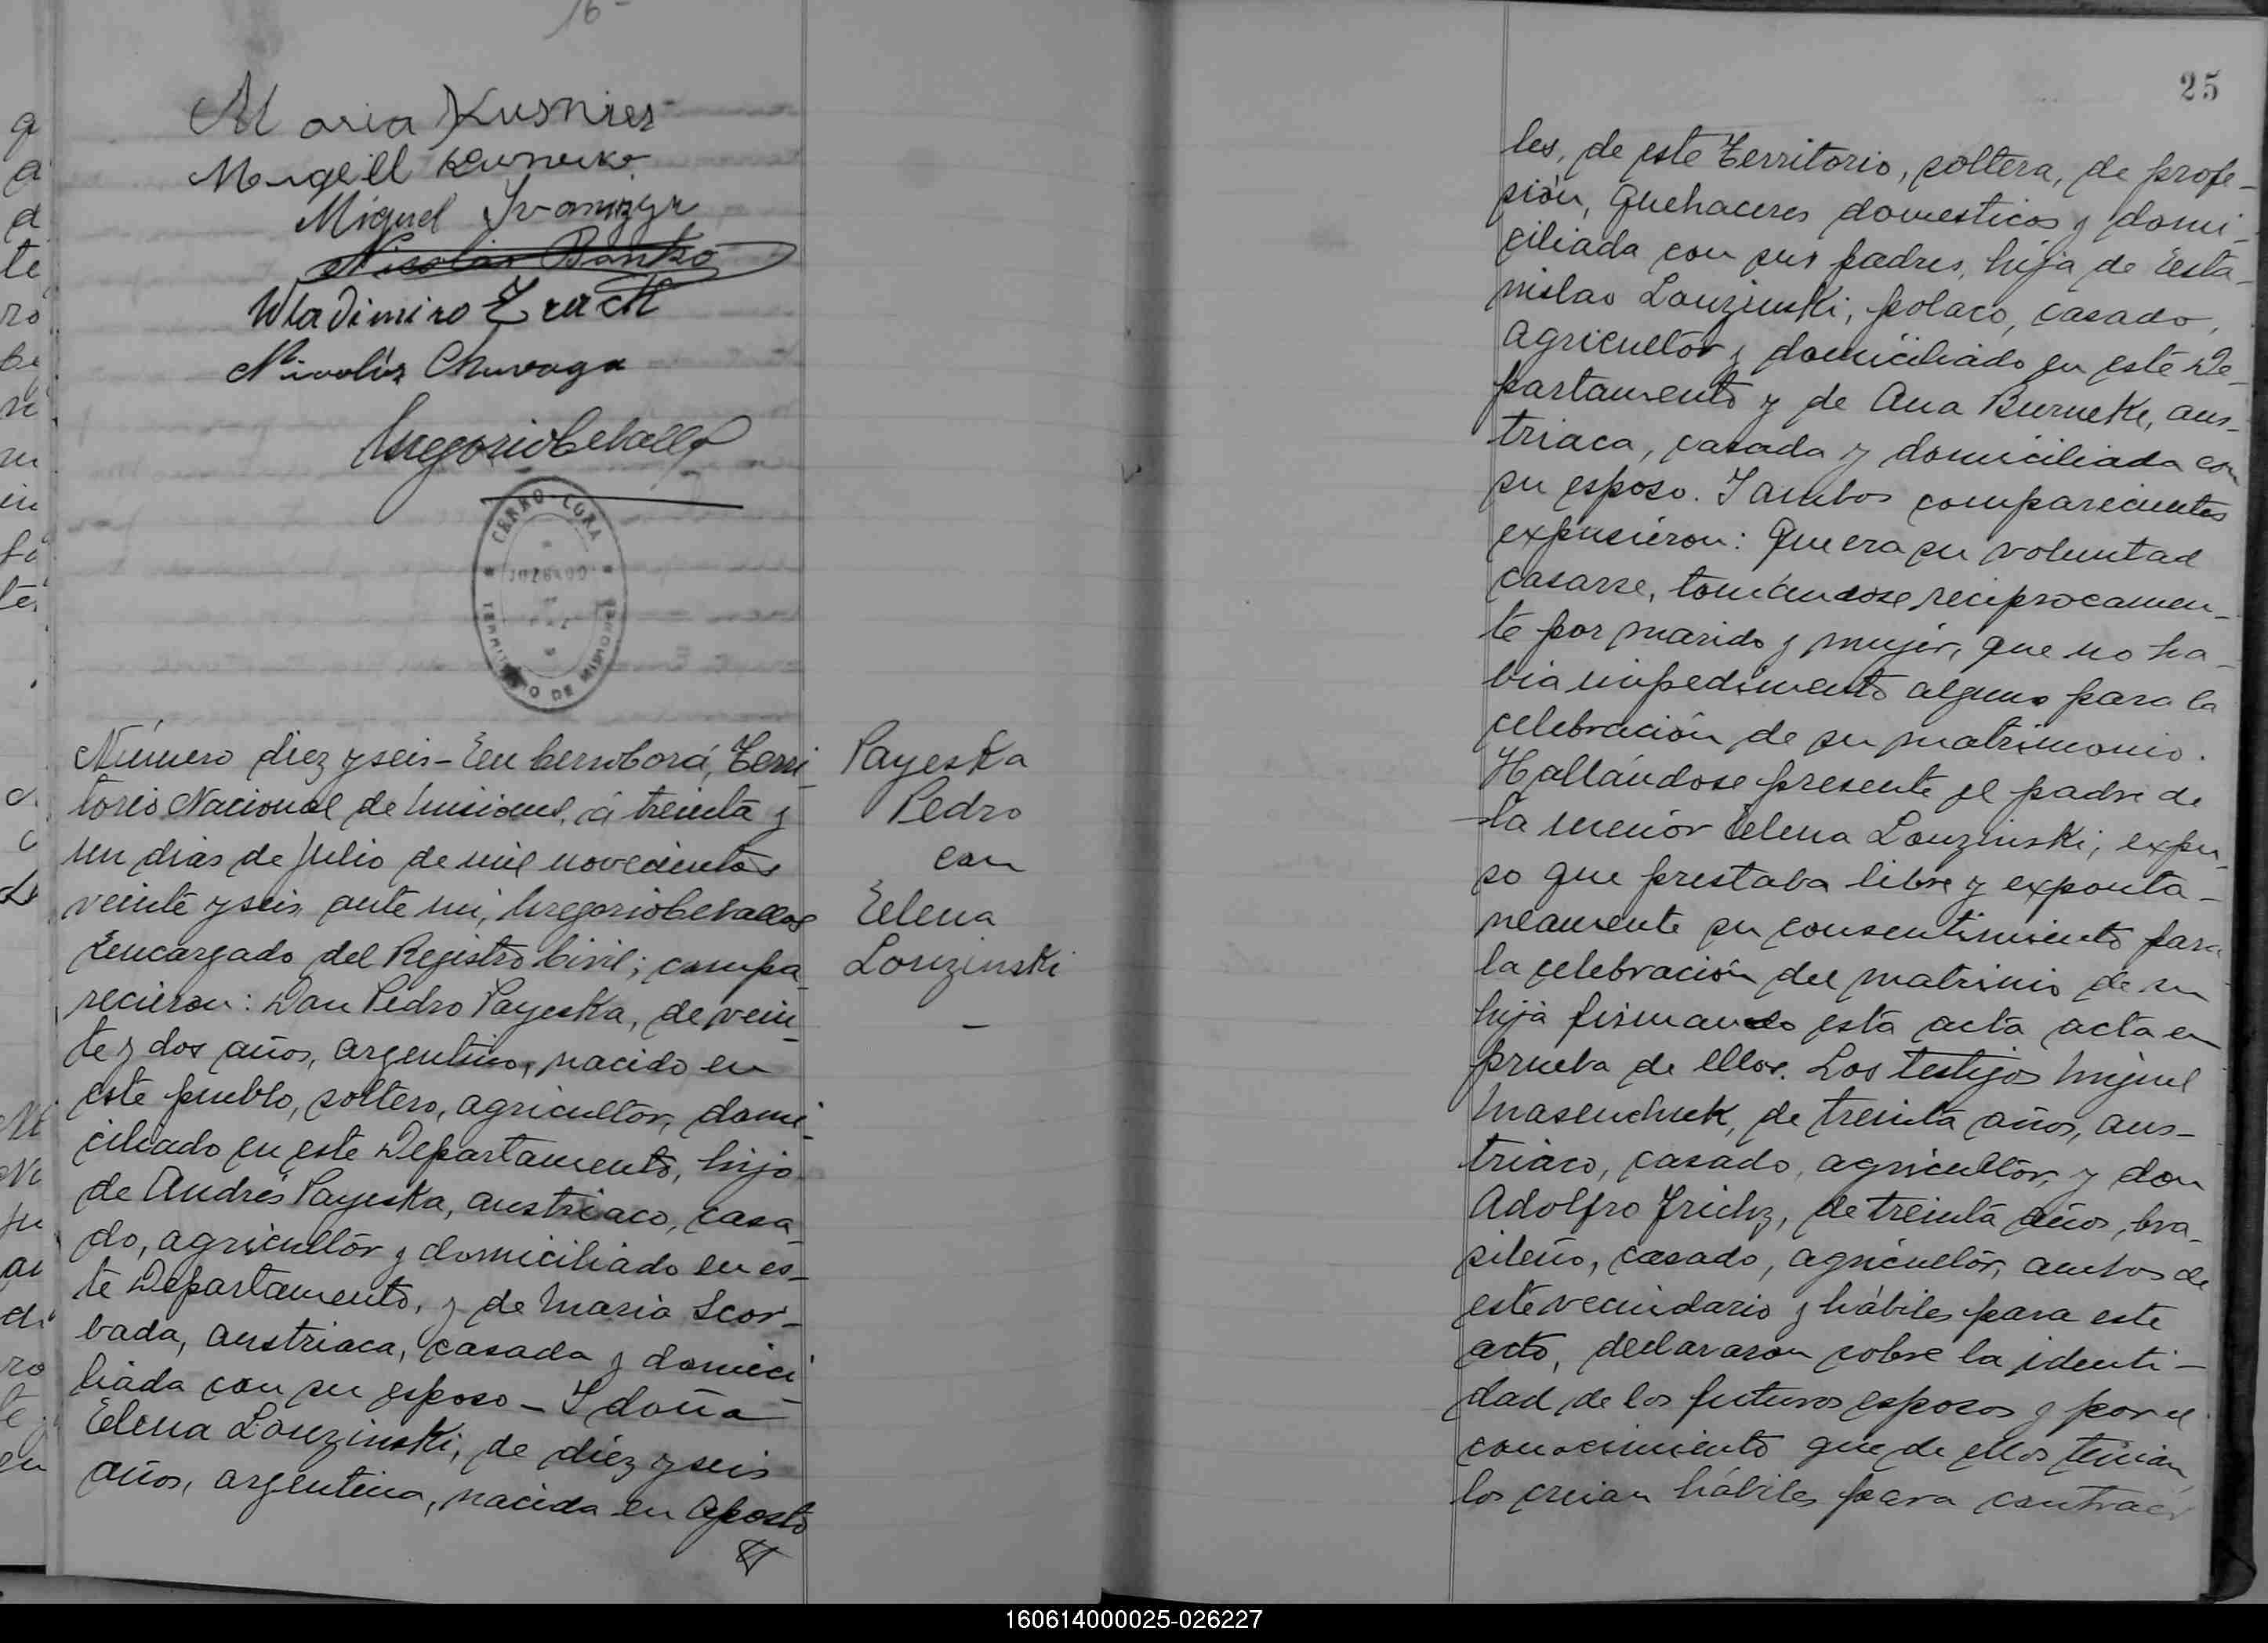 16-
Maria Kusnier
Miguel Ivanizyn
Nicolás Bontko
Wladimiro Zruck
Nicolás Chuvaga
Gregorio Ceballos
CERRO CORA
JUZGADO
TERRITORIO DE MISIONES
Número diez y seis - En Cerro Corá, Terri-
torio Nacional de Misiones, á treinta y
un dias de Julio de mil novecientos
veinte y seis, ante mi, Gregorio Ceballos
Encargado del Registro Civil; compa-
recieron: Don Pedro Payeska, de vein-
te y dos años, argentino, nacido en
este pueblo, soltero, agricultor, domi-
ciliado en este Departamento, hijo
de Andrés Payeska, austriaco, casa-
do, agricultor y domiciliado en es-
te Departamento, y de Maria Scor-
bada, austriaca, casada y domici-
liada con su esposo - Y doña
Elena Louzinski, de diez y seis
años, argentina, nacida en Aposto
Payeska
Pedro
con
Elena
Louzinski
-
25
les, de este Territorio, soltera, de profe-
sión, quehaceres domesticos y domi-
ciliada con sus padres, hija de Esta-
nislao Louzinski, polaco, casado,
agricultor y domiciliado en este De-
partamento y de Ana Burneke, aus-
triaca, casada y domiciliada con
su esposo. Y ambos comparecientes
expusieron: Que era su voluntad
casarse, tomandose reciprocamen-
te por marido y mujer, que no ha-
bia impedimento alguno para la
celebración de su matrimonio.
Hallándose presente el padre de
la menor Elena Louzinski; expu-
so que prestaba libre y exponta-
neamente su consentimiento para
la celebración del matrinio de su
hija firmando esta acta acta en
prueba de ellos. Los testigos Miguel
Masenchuk, de treinta años, aus-
triaco, casado, agricultor, y don
Adolfro Frichz, de treinta años, bra-
sileño, casado, agricultor, ambos de
este vecindario y hábiles para este
acto, declararon sobre la identi-
dad de los futuros esposos y por el
conocimiento que de ellos tenian,
los creian hábiles para contraer
160614000025-026227